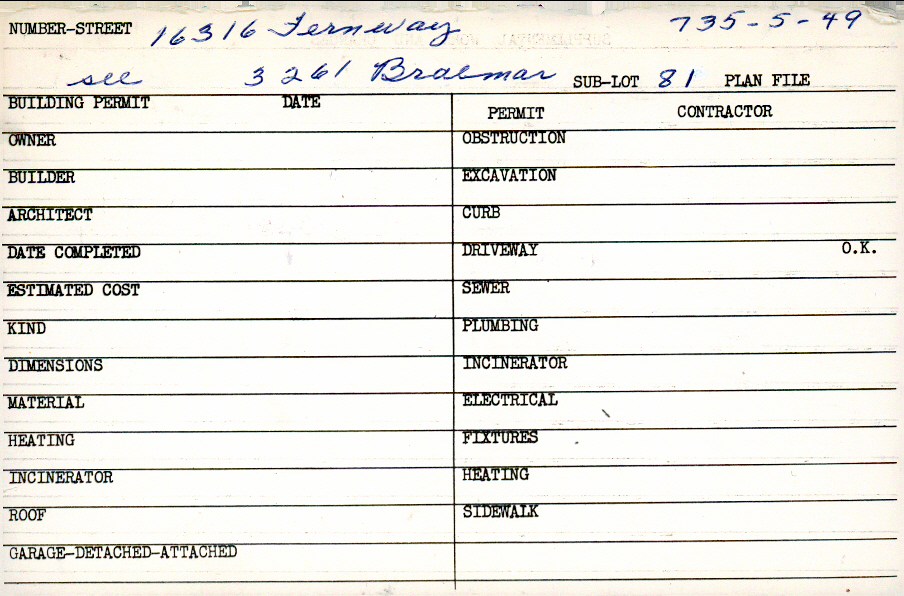 NUMBER-STREET 16316 Fernway 735-5-49
see 3261 Braemar SUB-LOT 81 PLAN FILE
BUILDING PERMIT DATE PERMIT CONTRACTOR
OWNER OBSTRUCTION
BUILDER EXCAVATION
ARCHITECT CURB
DATE COMPLETED DRIVEWAY O.K.
ESTIMATED COST SEWER
KIND PLUMBING
DIMENSIONS INCINERATOR
MATERIAL ELECTRICAL
HEATING FIXTURES
INCINERATOR HEATING
ROOF SIDEWALK
GARAGE-DETACHED-ATTACHED